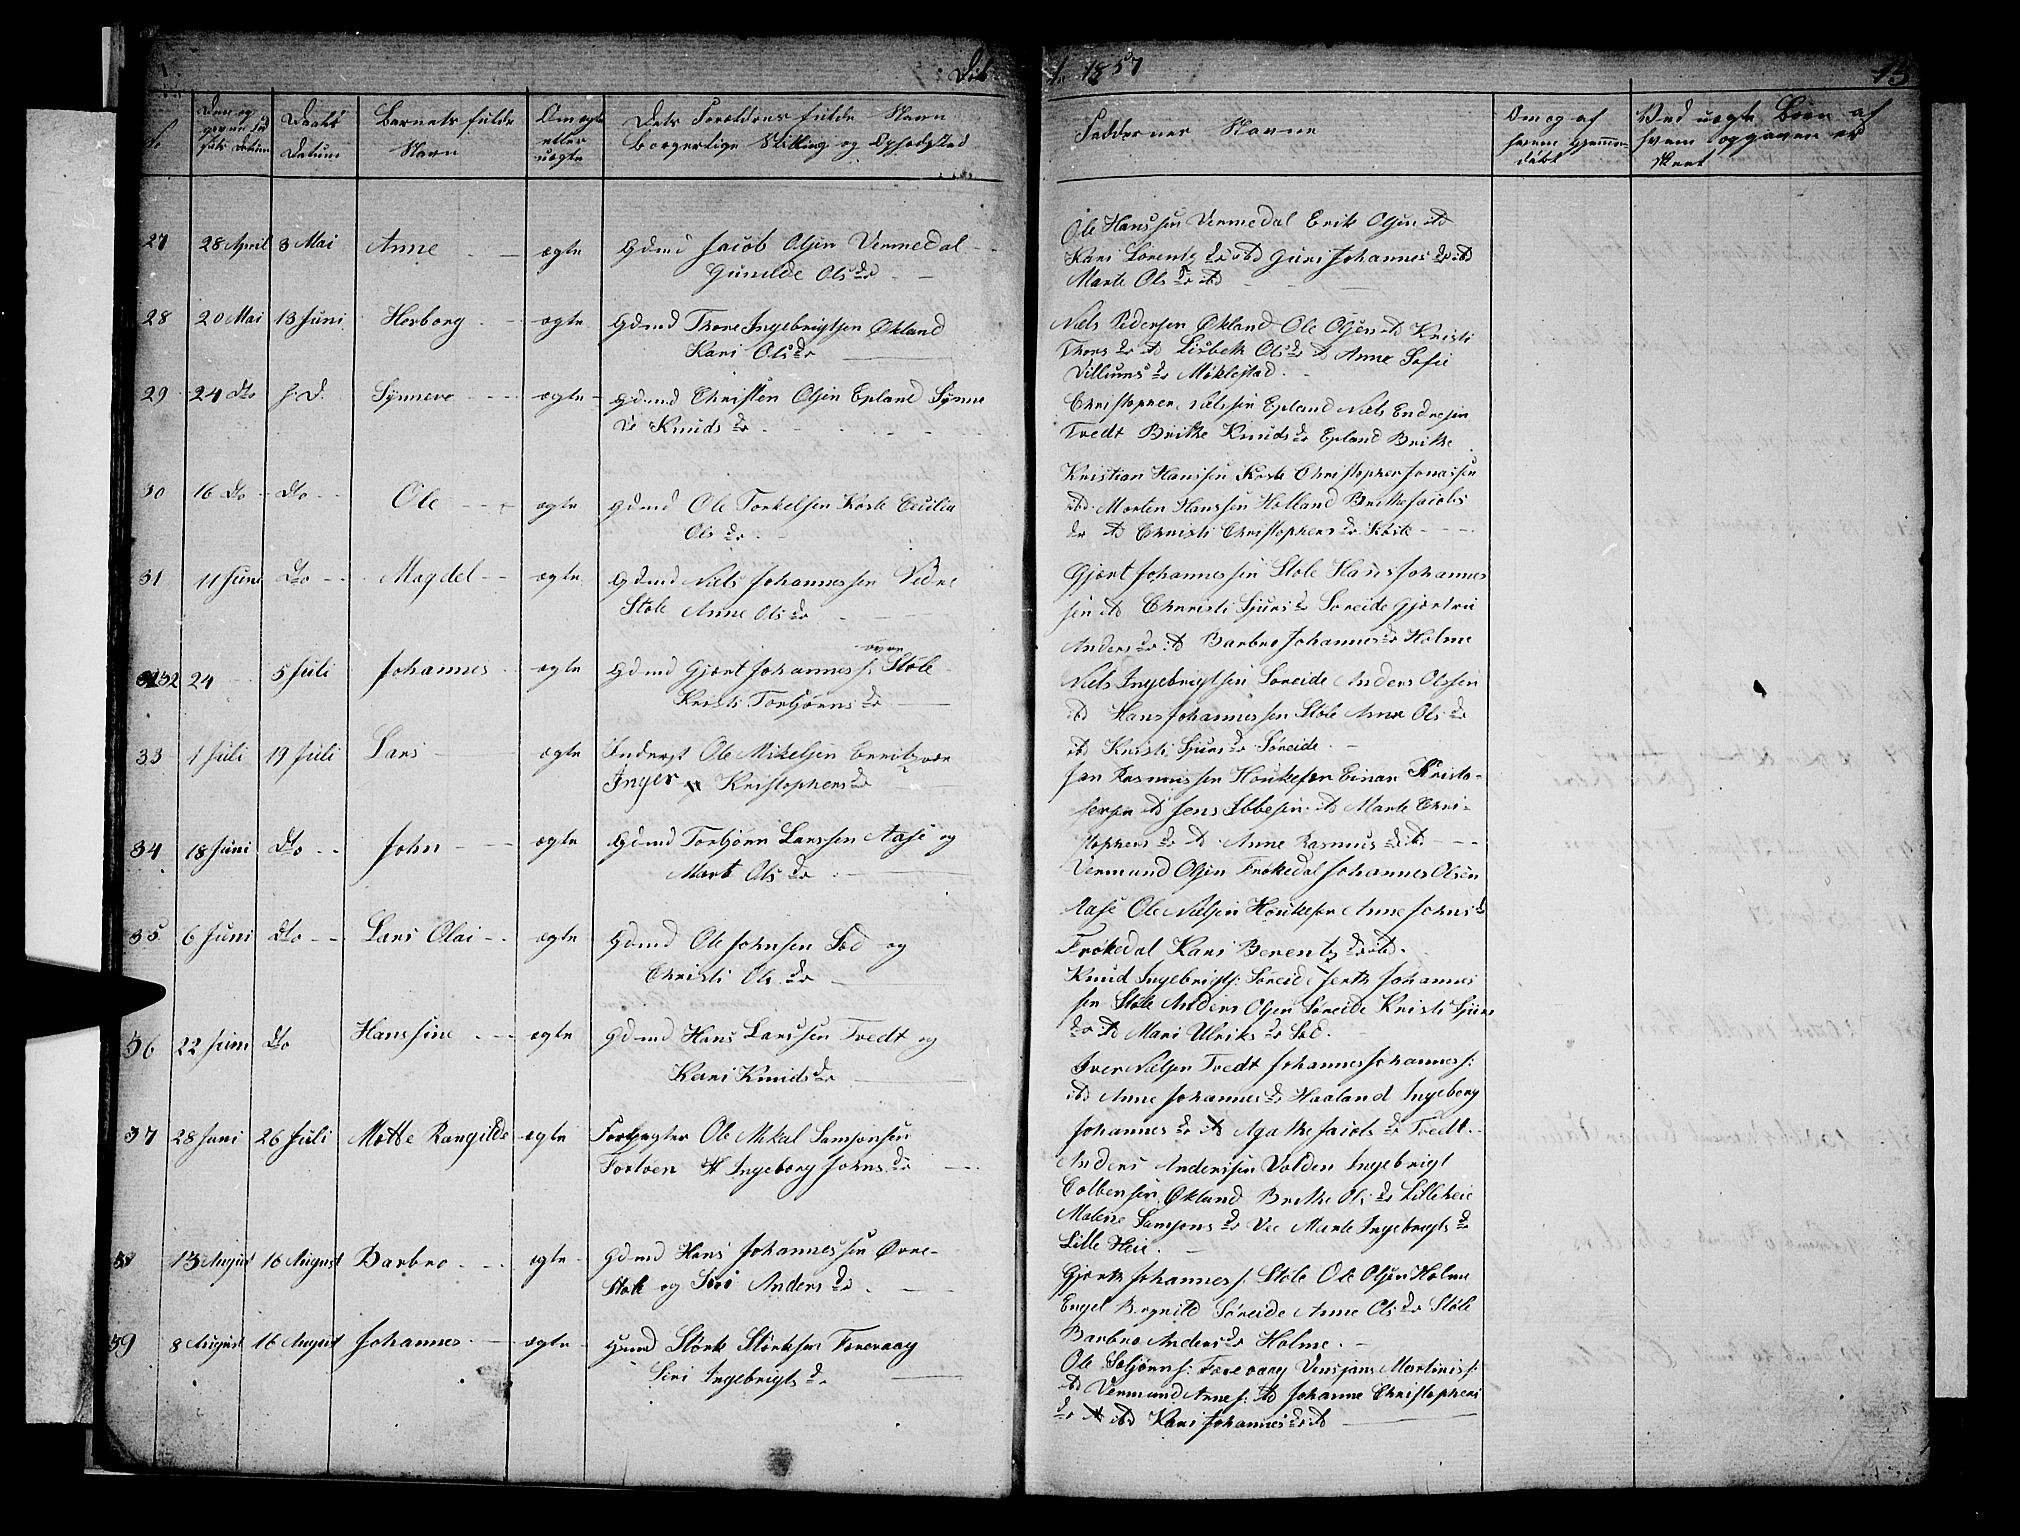 Døb-
te 1857
13
No
Den og
Daabs
Datum
Barnets fulde
Navn
Om ægte
eller
uægte
Dets Forældres fulde Navn
Borgerlige Stilling og Opholdsted
Faddernes Navne
Om og af
hvem hjemme-
døbt
Ved uægte Børn af
hvem opgaven er
skeet
27 28 April 3 Mai Anne ægte Gdmd Jacob Olsen Vermedal
Gunilde Olsdr
Ole Hanssen Vermedal Erik Olsen ibd
Kari Lorentzdr ibd Guri Johannesdr ibd
Marte Olsdr ibd
28 20 Mai 13 Juni Herborg ægte Gdmd Thore Ingebrigtsen Økland
Kari Olsdr
Niels Pedersen Økland Ole Olsen ibd Kristi
Thoresdr ibd Lisbeth Olsdr ibd Anne Sofie
Villumsdr Møklestad
29 24 Do Synneve ægte Gdmd Christen Olsen Epland Synne
ve Knudsdr
Christopher Nielssen Epland Niels Endresen
Tvedt Brithe Knudsdr Epland Brithe
30 16 Do Do Ole ægte Gdmd Ole Torkelsen Røste Cecilia
Olsdr
Kristian Hanssen Christopher Jonassen
ibd Morten Hanssen Holland Brithe Jacobs
dr ibd Christi Christophersdr
31 11 Juni Do Magdel ægte Gdmd Niels Johannessen Nedre
Støle Anne Olsdr
Gjert Johannessen Støle Hans Johannes
sen ibd Christi Sjursdr Søreide Gjertru
Andersdr ibd Barbro Johannesdr Holme
32 24 5 Juli Johannes ægte Gdmd Gjert Johanness: øvre Støle
Kristi Torbjørnsdr
Niels Ingebrigtsen Søreide Anders Olssen
ibd Hans Johannessen Støle Anne Olsdr
ibd Kristi Sjursdr Søreide
33 1 Juli 19 Juli Lars ægte Inderst Ole Mikelsen
Inger Kristophersdr
Jan Rasmussen Houkefær Einar Kristo-
fersen ibd Jens Ebbesen ibd Marte Chri-
stophersdr ibd Anne Rasmusdr ibd
34 18 Juni Do John ægte Gdmd Torbjørn Larssen Aase og
Marte Olsdr
Vermund Olsen Frøkedal Johannes Olsen
Aase Ole Nielsen Houkefær Anne Johnsdr
Frøkedal Kari Berentzdr ibd
35 6 Juni Do Lars Olai ægte Gdmd Ole Johnsen Lød og
Christi Olsdr
Knud Ingebrigts: Søreide Gjerth Johannes
sen Støle Anders Olsen Søreide Kristi Sjurs
dr ibd Mari Ulriksdr Lød
36 22 Juni Do Hanssine ægte Gdmd Hans Larssen Tvedt og
Kari Knudsdr
Iver Nielsen Tvedt Johannes Johanness:
ibd Anne Johannesdr Haaland Ingeborg
Johannesdr ibd Agathe Jacobsdr Tvedt
37 28 Juni 26 Juli Mette Rangilde ægte Forpagter Ole Mikal Samsonsen
Fortoen Ingeborg Johnsdr
Anders Anderssen Volden Ingebrigt
Colbensen Økland Brithe Olsdr Lilleheie
Malene Samsonsdr Vee Marte Ingebrigtsdr
Lille Heie
38 13 August 16 August Barbro ægte Gdmd Hans Johannessen Øvre-
Støle og Siri Andersdr
Gjerth Johanness: Støle Ole Olsen Holme
Engel Bognild Søreide Anne Olsdr Støle
Barbro Andersdr Holme
39 8 August 16 August Johannes ægte Gdmd Størk Størksen Forevaag
Siri Ingebrigtsdr
Ole Forevaag Martinius:
ibd Vermund Arnes: ibd Johanne Christophers
dr ibd Kari Johannesdr ibd